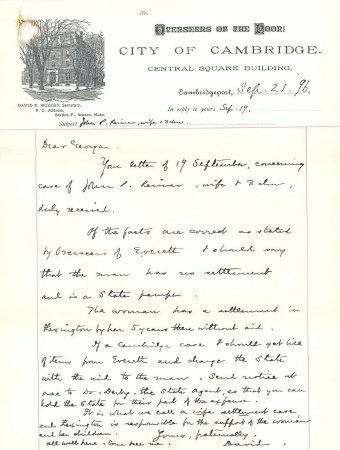 No.
OVERSEERS OF THE POOR:
CITY OF CAMBRIDGE.
CENTRAL SQUARE BUILDING,
DAVID P. MUZZEY, Secretary,
P. O. Address,
Station F., Boston, Mass.
Cambridgeport, Sep. 21 '96.
In reply to yours Sep. 19.
Subject John P. wife & 2 chn.
Dear George,
Your letter of 19 September, concerning
case of John P. , wife & 2 chn,
duly received.
If the facts are correct as stated
by Overseers of Everett I should say
that the man has no settlement
and is a State pauper.
The woman has a settlement in
Lexington by her 5 years there without aid.
If a Cambridge case I should get bill
of items from Everett and charge the State
with the aid to the man. Send notice at
once to Dr. Derby, the State Agent, so that you can
hold the State for their part of the expense.
It is what we call a wife settlement case
and Lexington is responsible for the support of the woman
and her children. Yours, paternally,
all well here. Come see me. David